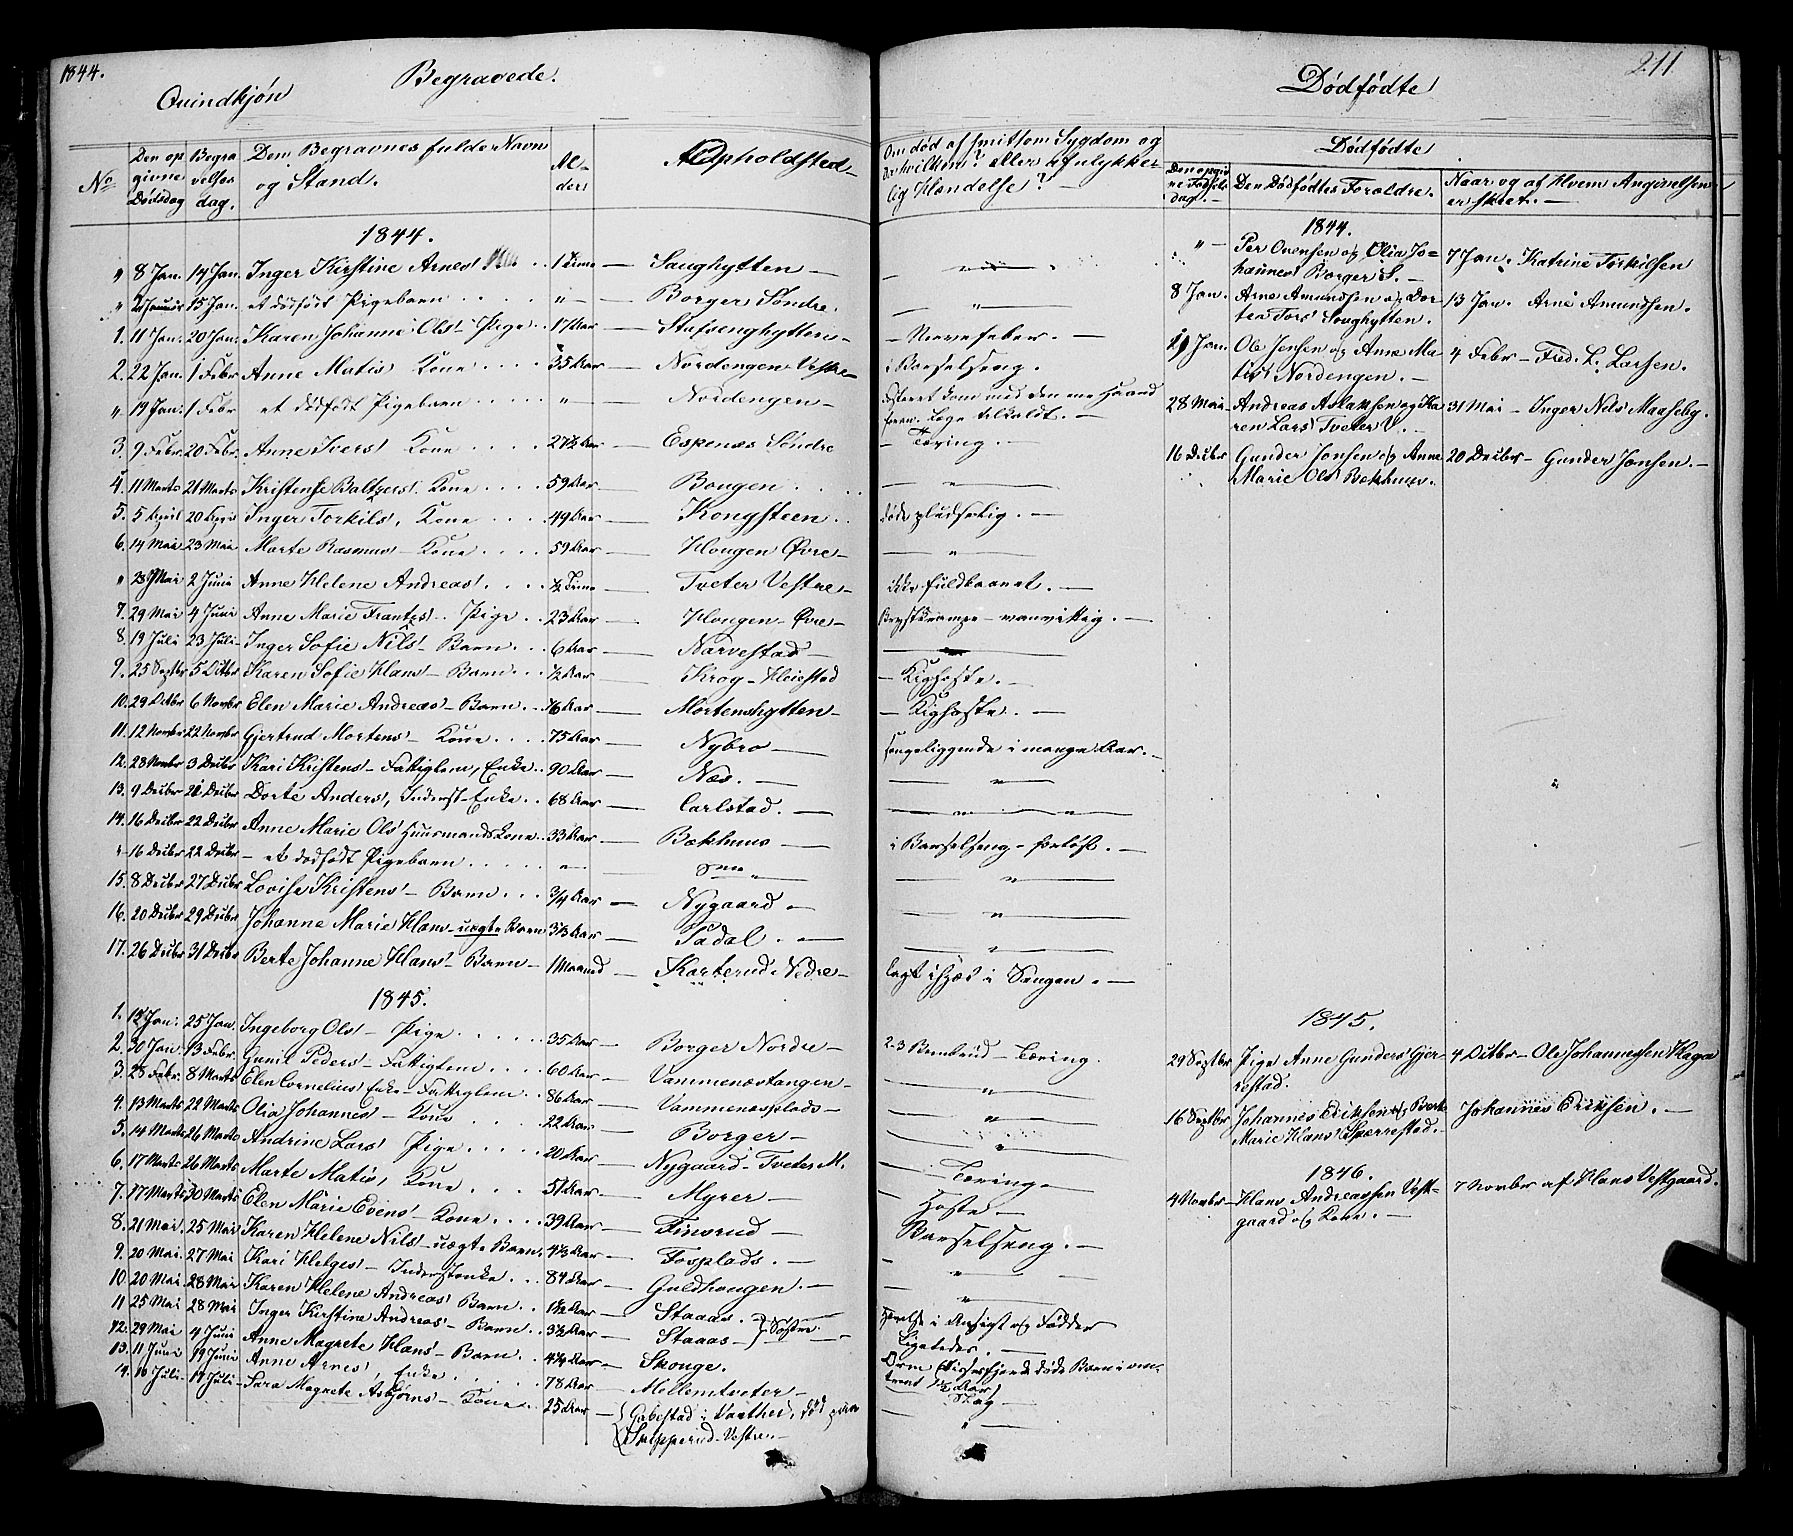 1844.
Qvindkjøn
Begravede.
No
Den op
givne
Dødsdag
Begra
velses
dag.
Den Begravnes fulde Navn
og Stand.
Al-
der
Opholdsted
1844.
" 8 Jan. 14 Jan. Inger Kirstine Arnes 1 Time — Saughytten —
" 15 Jan. et dødfødt Pigebarn " — Borger Søndre.
1. 11 Jan. 20 Jan. Karen Johanne Ols Pige 17 Aar — Stufsenghytten —
2. 22 Jan. 1 Febr Anne Matis Kone 35 Aar — Nordengen Vestre —
" 19 Jan. 1 Febr et dødfødt Pigebarn " — Nordengen —
3. 9 Febr. 20 Febr. Anne Ivers Kone 27½ Aar — Espenæs Søndre
4. 11 Marts 21 Marts Kristense Baltzers. Kone 59 Aar — Bougen
5. 5 April 20 April Inger Torkils, Kone 49 Aar — Kongsteen
6. 14 Mai 23 Mai Marte Rasmus — Kone 59 Aar — Hougen Øvre —
" 28 Mai 2 Juni Anne Helene Andreas. ½ Time — Tveter Vestre —
7. 29 Mai 4 Juni Anne Marie Frantzs. Pige 23 Aar — Hougen — Øvre —
8. 19 Juli 23 Juli Inger Sofie Nils — Barn 6 Aar — Narvestad —
9. 25 Septbr 5 Octbr Karen Sofie Hans — Barn ½ Aar — Krog — Heiestad
10. 29 Octbr 6 Novbr Elen Marie Andreas — Barn Aar — Mortenshytten —
11. 12 Novbr 22 Novbr Gjertrud Mortens — Kone 75 Aar — Nybro —
12. 28 Novbr 3 Decbr Kari Kristens — Fattiglem, Enke 90 Aar — Næs. —
13. 9 Decbr 21 Decbr Dorte Anders, Inderst-Enke 68 Aar — Carlstad. —
14. 16 Decbr 22 Decbr Anne Marie Ols Huusmandskone 33 Aar — Bækhuus —
" 16 Decbr 22 Decbr — et dødfødt Pigebarn —
15. 8 Decbr 27 Decbr Lovise Kristens — Barn 3/4 Aar — Nygaard —
16. 20 Decbr 29 Decbr Johanne Marie Hans — uægte Barn Aar — Sadal. —
17. 26 Decbr 31 Decbr Berte Johanne Hans — Barn — 1 Maaned — Karterud Nedre —
1845.
1. 12 Jan. 25 Jan. Ingeborg Ols — Pige 35 Aar — Borger Nordre —
2. 30 Jan. 13 Febr. Gunil Peders — Fattiglem 60 Aar — Vammenæstangen —
3. 28 Febr. 8 Marts Elen Cornelius Enke — Fattiglem 86 Aar — Vammenæsplads —
4. 13 Marts 22 Marts Olia Johannes — Kone 22 Aar — Borger —
5. 14 Marts 26 Marts Andrine Lars Pige 20 Aar — Nygaard — Tveter M.
6. 17 Marts 26 Marts Marte Matis, Kone 51 Aar — Myrer —
7. 17 Marts 30 Marts Elen Marie Evens — Kone 39 Aar — Finsrud —
8. 21 Mai 25 Mai Karen Helene Nils — uægte Barn Aar — Fosplads. —
9. 20 Mai 27 Mai Kari Helges — Inderstenke 84 Aar — Guldhougen. —
10. 20 Mai 28 Mai Karen Helene Andreas Barn 1½ Aar — Staaas.
11. 25 Mai 28 Mai Inger Kirstine Andreas — Barn 3½ Aar — Staaas — } Søstre.
12. 29 Mai 4 Juni Anne Magrete Hans — Barn Aar — Skouge.
13. 11 Juni 19 Juni Anne Arnes, Enke 78 Aar — Mellemtveter —
14. 10 Juli 17 Juli Sara Magrete Asbjørns — Kone 25 Aar — Gabestad i Vaathei, død paa
Skipperud Vestre. —
211
Dødfødte
Om død af smitsom Sygdom og
hvilken? eller af ulykke-
lig Hændelse? —
— Nervefeber. —
i Barselseng.
— Tæring. —
døde pludselig. —
ikke fuldbaaret. —
Brystkrampe — vanvittig. —
— Kighoste. —
— Kighoste. —
sengeliggende i mange Aar. —
i Barselseng — forløst. —
lagt ihjæl i Sengen. —
Tæring.
Tæring —
Hoste —
Barselseng. —
Hævelse i Ansigt og Fødder
Ligeledes. —
Slag —
Dødfødte
Den opgiv
ne Fødsels
dag. —
Den Dødfødtes Forældre.
Naar og af Hvem Angivelsen
er skeet. —
1844.
" — Per Ovensen og Olia Jo-
hannes Borger S. —
7 Jan. Katrine Torkilsen
8 Jan. Arne Amundsen og Dor-
tea Tors Saughytten.
13 Jan. Arne Amundsen.
19 Jan. Ole Jensen og Anne Ma-
tis Nordengen. —
4 Febr — Fred. L. Larsen.
28 Mai — Andreas Aslaksen og Ka
ren Lars Tveter V. —
31 Mai — Inger Nels Maaseby.
16 Decbr Gunder Jonsen og Anne
Marie Ols Bækhuus.
20 Decbr — Gunder Jonsen. —
1845.
29 Septbr Pige Anne Gunders Gjer-
restad.
4 Octbr — Ole Johannesen Haga
16 Septbr Johannes Eriksen og Berte
Marie Hans Sperrestad. —
Johannes Eriksen. —
1846.
4 Novbr — Hans Andreassen Vest-
gaard og Kone. —
7 Novbr af Hans Vestgaard.